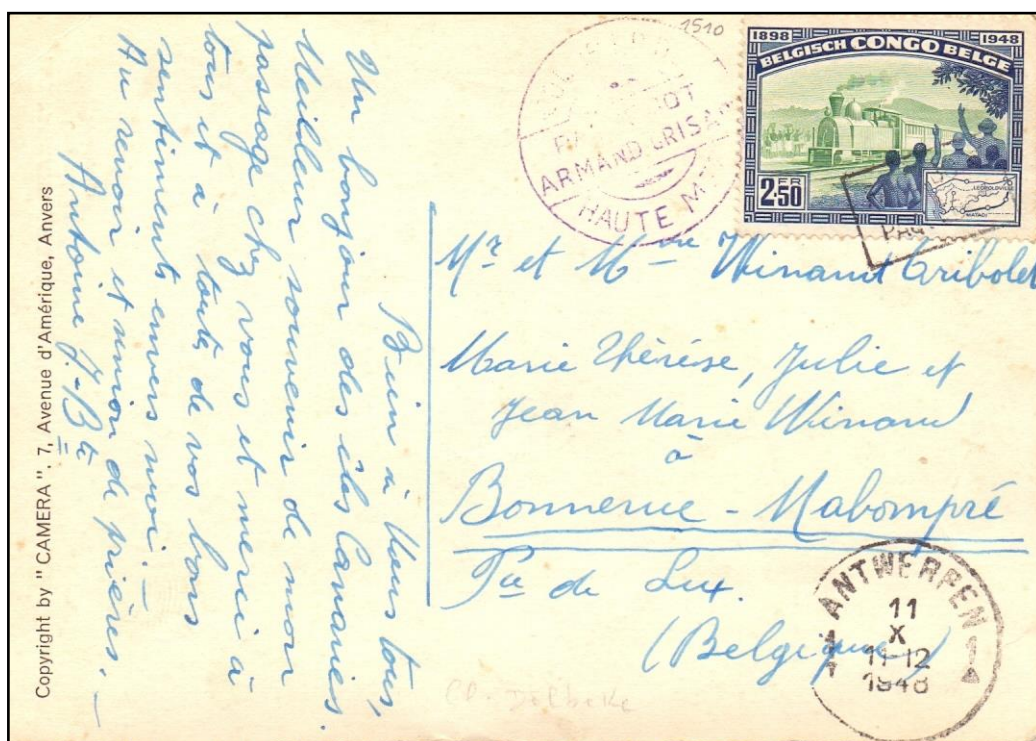 Copyright by " CAMERA ". 7, Avenue d'Amérique, Anvers
Bien à Vous tous,
Un bonjour des îles Canaries.
Meilleur souvenir de mon
passage chez vous et merci à
tous et à toute de vos bons
sentiments envers moi. –
Au revoir et union de prières. –
Antoine J-Bte
1510
ARMAND GRISAR
HAUTE
1898 1948
BELGISCH CONGO BELGE
2.50 FR
LEOPOLDVILLE
MATADI
PAQ
Mr et Mme Winand
Marie Thérèse, Julie et
Jean Marie Winand
à
Bonnerue - Mabompré
Pce de Lux.
(Belgique)
ANTWERPEN
11
X
11-12
1948
1 1
A